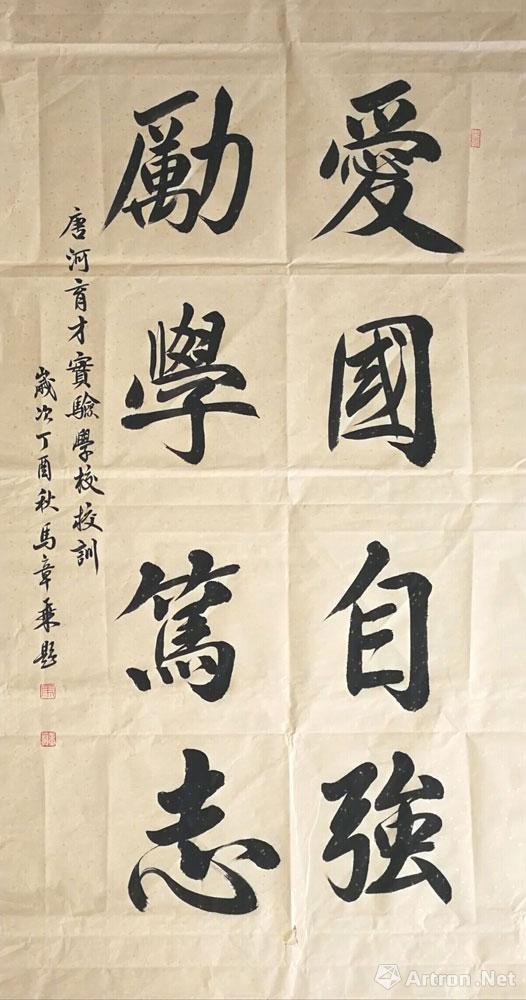 愛國自強
勵學篤志
唐河育才實驗學校校訓
歲次丁酉秋馬章乘題
Artron.Net